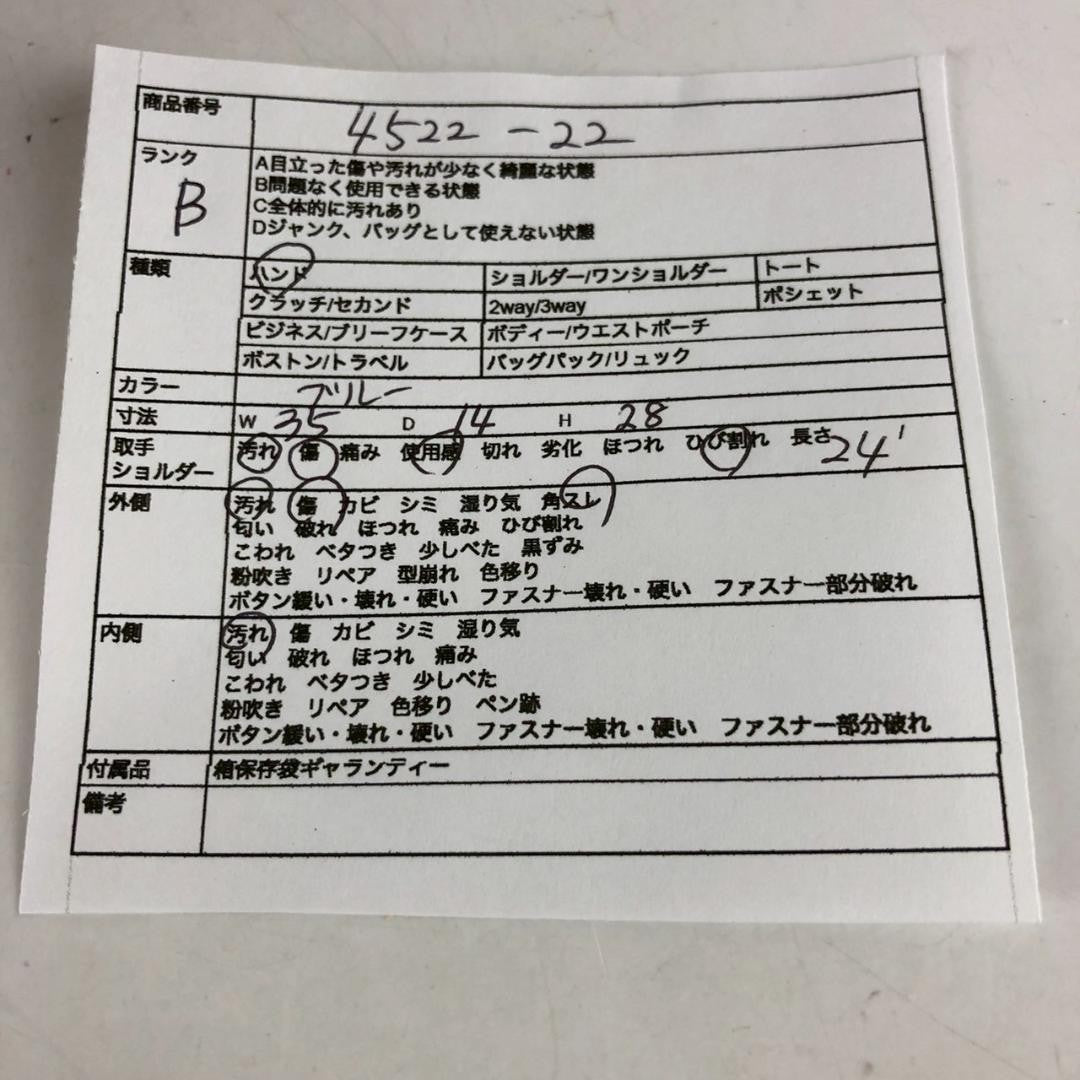 商品番号 4522-22
ランク B
A目立った傷や汚れが少なく綺麗な状態
B問題なく使用できる状態
C全体的に汚れあり
Dジャンク、バッグとして使えない状態
種類 ハンド ショルダー/ワンショルダー トート
クラッチ/セカンド 2way/3way ポシェット
ビジネス/ブリーフケース ボディー/ウエストポーチ
ボストン/トラベル バッグパック/リュック
カラー ブルー
寸法 W 35 D 14 H 28
取手 汚れ 傷 痛み 使用感 切れ 劣化 ほつれ ひび割れ 長さ 24
ショルダー
外側 汚れ 傷 カビ シミ 湿り気 角スレ
匂い 破れ ほつれ 痛み ひび割れ
こわれ ベタつき 少しべた 黒ずみ
粉吹き リペア 型崩れ 色移り
ボタン緩い・壊れ・硬い ファスナー壊れ・硬い ファスナー部分破れ
内側 汚れ 傷 カビ シミ 湿り気
匂い 破れ ほつれ 痛み
こわれ ベタつき 少しべた
粉吹き リペア 色移り ペン跡
ボタン緩い・壊れ・硬い ファスナー壊れ・硬い ファスナー部分破れ
付属品 箱保存袋ギャランティー
備考